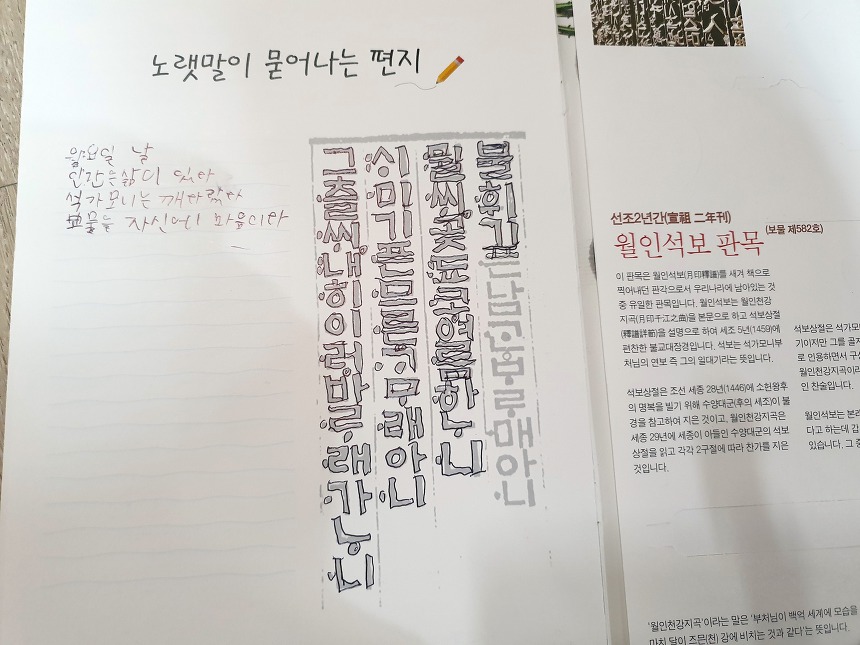 노랫말이 묻어나는 편지
월요일 날
인간은 삶이 있다
석가모니는 깨다랐다
보물은 자신에 마음이다
불휘기픈남ᄀᆞᆫᄇᆞᄅᆞ매아니
뮐ᄊᆡ곶됴코여름하ᄂᆞ니
ᄉᆡ미기픈므른ᄀᆞᄆᆞ래아니
그츨ᄊᆡ내히이러바ᄅᆞ래가ᄂᆞ니
선조2년간(宣祖 二年刊)
월인석보 판목 (보물 제582호)
이 판목은 월인석보(月印釋譜)를 새겨 책으로
찍어내던 판각으로서 우리나라에 남아있는 것
중 유일한 판목입니다. 월인석보는 월인천강
지곡(月印千江之曲)을 본문으로 하고 석보상절
(釋譜詳節)을 설명으로 하여 세조 5년(1459)에
편찬한 불교대장경입니다. 석보는 석가모니부
처님의 연보 즉 그의 일대기라는 뜻입니다.
석보상절은 조선 세종 28년(1446)에 소헌왕후
의 명복을 빌기 위해 수양대군(후의 세조)이 불
경을 참고하여 지은 것이고, 월인천강지곡은
세종 29년에 세종이 아들인 수양대군의 석보
상절을 읽고 각각 2구절에 따라 찬가를 지은
것입니다.
석보상절은 석가모
기이지만 그를 골자
로 인용하면서 구성
월인천강지곡이라
인 찬술입니다.
월인석보는 본래
다고 하는데 갑
있습니다. 그 중
'월인천강지곡'이라는 말은 '부처님이 백억 세계에 모습을
마치 달이 즈믄(천) 강에 비치는 것과 같다'는 뜻입니다.